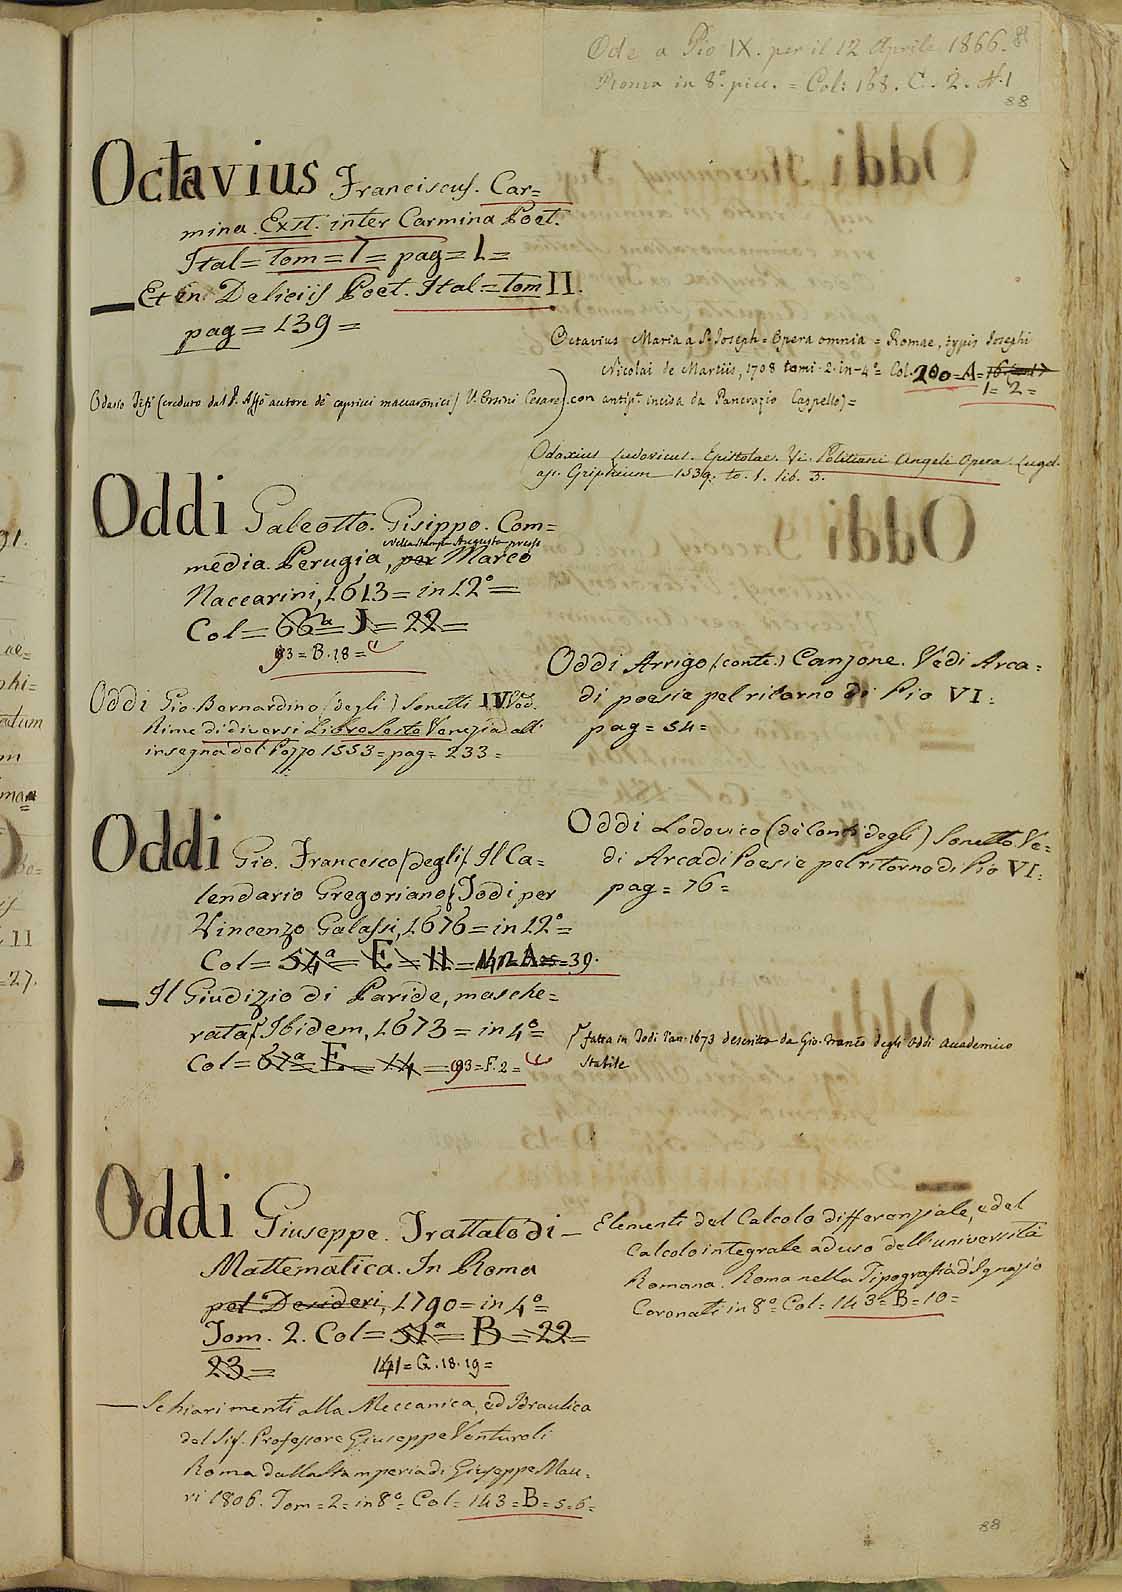 Ode a Pio IX. per il 12 Aprile 1866.
Roma in 8.º picc. = Col: 168. C. 2. H. 1
88
Octavius Franciscus. Car=
mina. Exst. inter Carmina Poet.
Ital = tom = 7 = pag = 1 =
Et in Deliciis Poet. Ital = tom II.
pag = 139 =
Octavius Maria a S. Joseph = Opera omnia = Romae, typis Josephi
Nicolai de Martiis, 1708 tomi 2. in-4º = Col. 200 = A = 16 = 17
1 = 2 =
Odasio Tifi (creduto dal P. Affò autore de' capricci maccaronici) V. Orsini Cesare) con antip.ª incisa da Pancrazio Cappello) =
Odaxius Ludovicus. Epistolae. Vi. Politiani Angeli Opera. Lugd.
ap. Griphium 1539. to. 1. lib. 3.
Oddi Galeotto. Gisippo. Com=
media. Perugia, per Marco
nella stampa Augusta presso
Naccarini, 1613 = in 12º =
Col = 66ª = J = 22 =
93 = B. 18 =
Oddi Arrigo (conte.) Canzone. Vedi Arca=
di poesie pel ritorno di Pio VI:
pag = 54 =
Oddi Gio. Bernardino (degli) Sonetti IV. Ved.
Rime di diversi Libro Sesto Venezia all'
insegna del Pozzo 1553 = pag = 233 =
Oddi Gio. Francesco (degli). Il Ca=
lendario Gregoriano. Todi per
Vincenzo Galassi, 1676 = in 12º =
Col = 54ª = E = 11 = 142 = A = 39.
Oddi Lodovico (de' Conti degli) Sonetto Ve=
di Arcadi Poesie pel ritorno di Pio VI:
pag = 76 =
Il Giudizio di Paride, masche=
rata. Ibidem, 1673 = in 4º =
Col = 67ª = E = 14 = 93 = F. 2 =
fatta in Todi l'an. 1673 descritta da Gio. Franco degli Oddi Accademico
Stabile
Oddi Giuseppe. Trattato di
Mattematica. In Roma
pel Desideri, 1790 = in 4º =
Tom. 2. Col = 51ª = B = 22 =
23 =
141 = G. 18. 19 =
Elementi del Calcolo differenziale, e del
Calcolo integrale ad uso dell'università
Romana. Roma nella Tipografia d'Ignazio
Coronati in 8º = Col = 143 = B = 10 =
Schiarimenti alla Meccanica, ed Idraulica
del Sig. Professore Giuseppe Venturoli
Roma dalla Stamperia di Giuseppe Mau=
ri 1806. Tom = 2 = in 8º = Col = 143 = B = 5 = 6 =
88